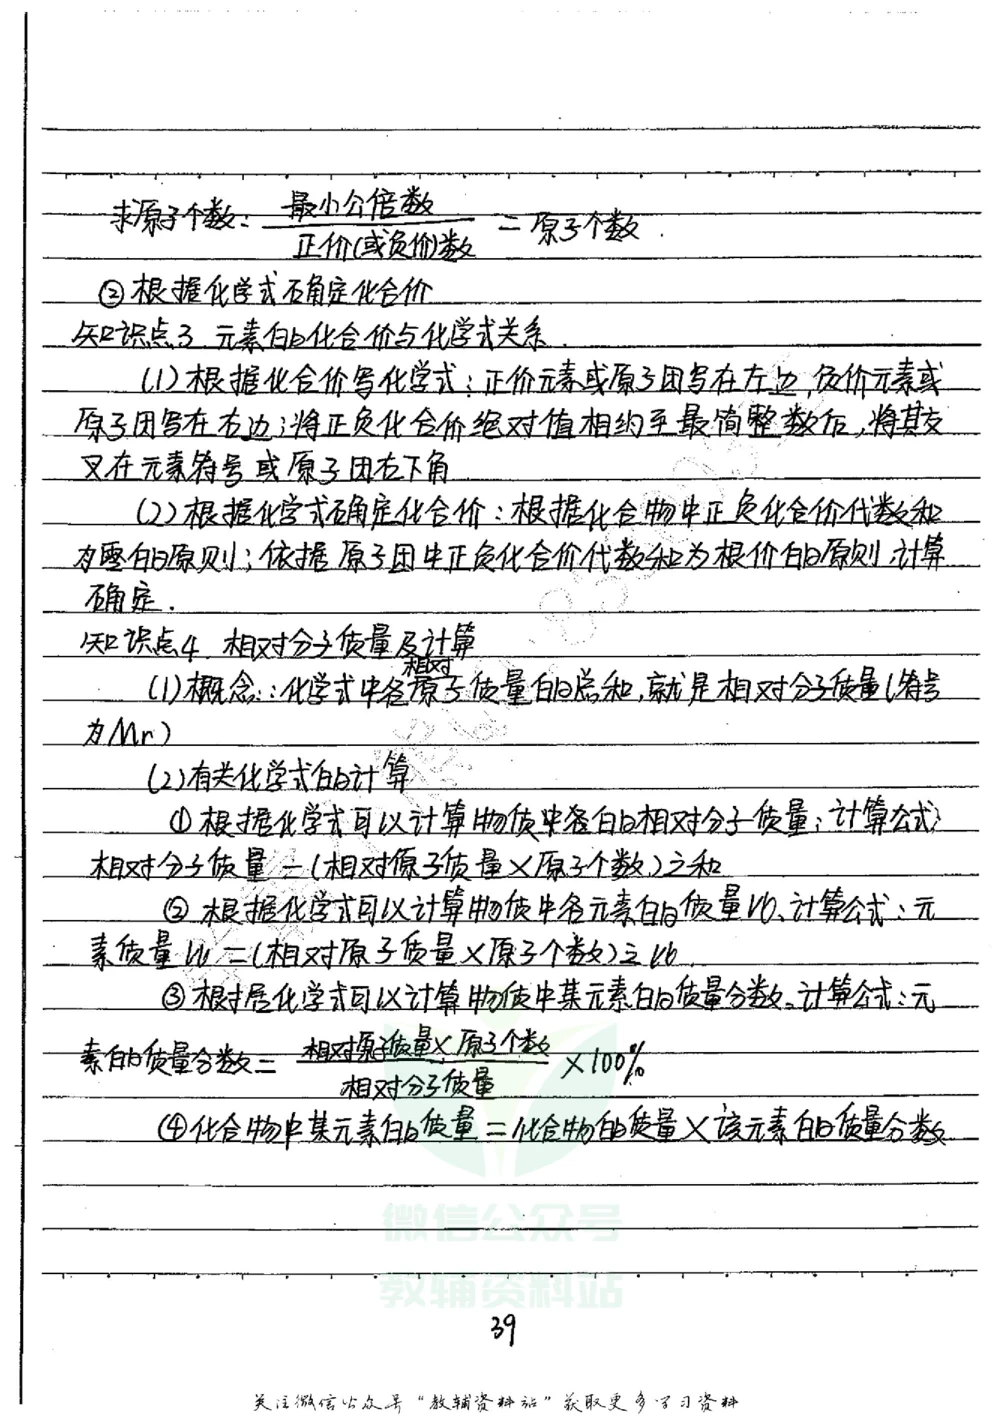 求原子个数: 最小公倍数/正价(或负价)数 = 原子个数.
②根据化学式确定化合价
知识点3 元素的化合价与化学式关系.
(1)根据化合价写化学式:正价元素或原子团写在左边,负价元素或
原子团写在右边;将正负化合价绝对值相约至最简整数后,将其交
叉在元素符号或原子团右下角
(2)根据化学式确定化合价:根据化合物中正负化合价代数和
为零的原则;依据原子团中正负化合价代数和为根价的原则,计算
确定.
知识点4 相对分子质量及计算
(1)概念:化学式中各相对原子质量的总和,就是相对分子质量(符号
为Mr)
(2)有关化学式的计算
①根据化学式可以计算物质中各的相对分子质量;计算公式:
相对分子质量=(相对原子质量×原子个数)之和
②根据化学式可以计算物质中各元素的质量比、计算公式:元
素质量比=(相对原子质量×原子个数)之比
③根据化学式可以计算物质中某元素的质量分数、计算公式:元
素的质量分数= 相对原子质量×原子个数/相对分子质量 ×100%
④化合物中某元素的质量=化合物的质量×该元素的质量分数
微信公众号
教辅资料站
39
关注微信公众号“教辅资料站”获取更多学习资料